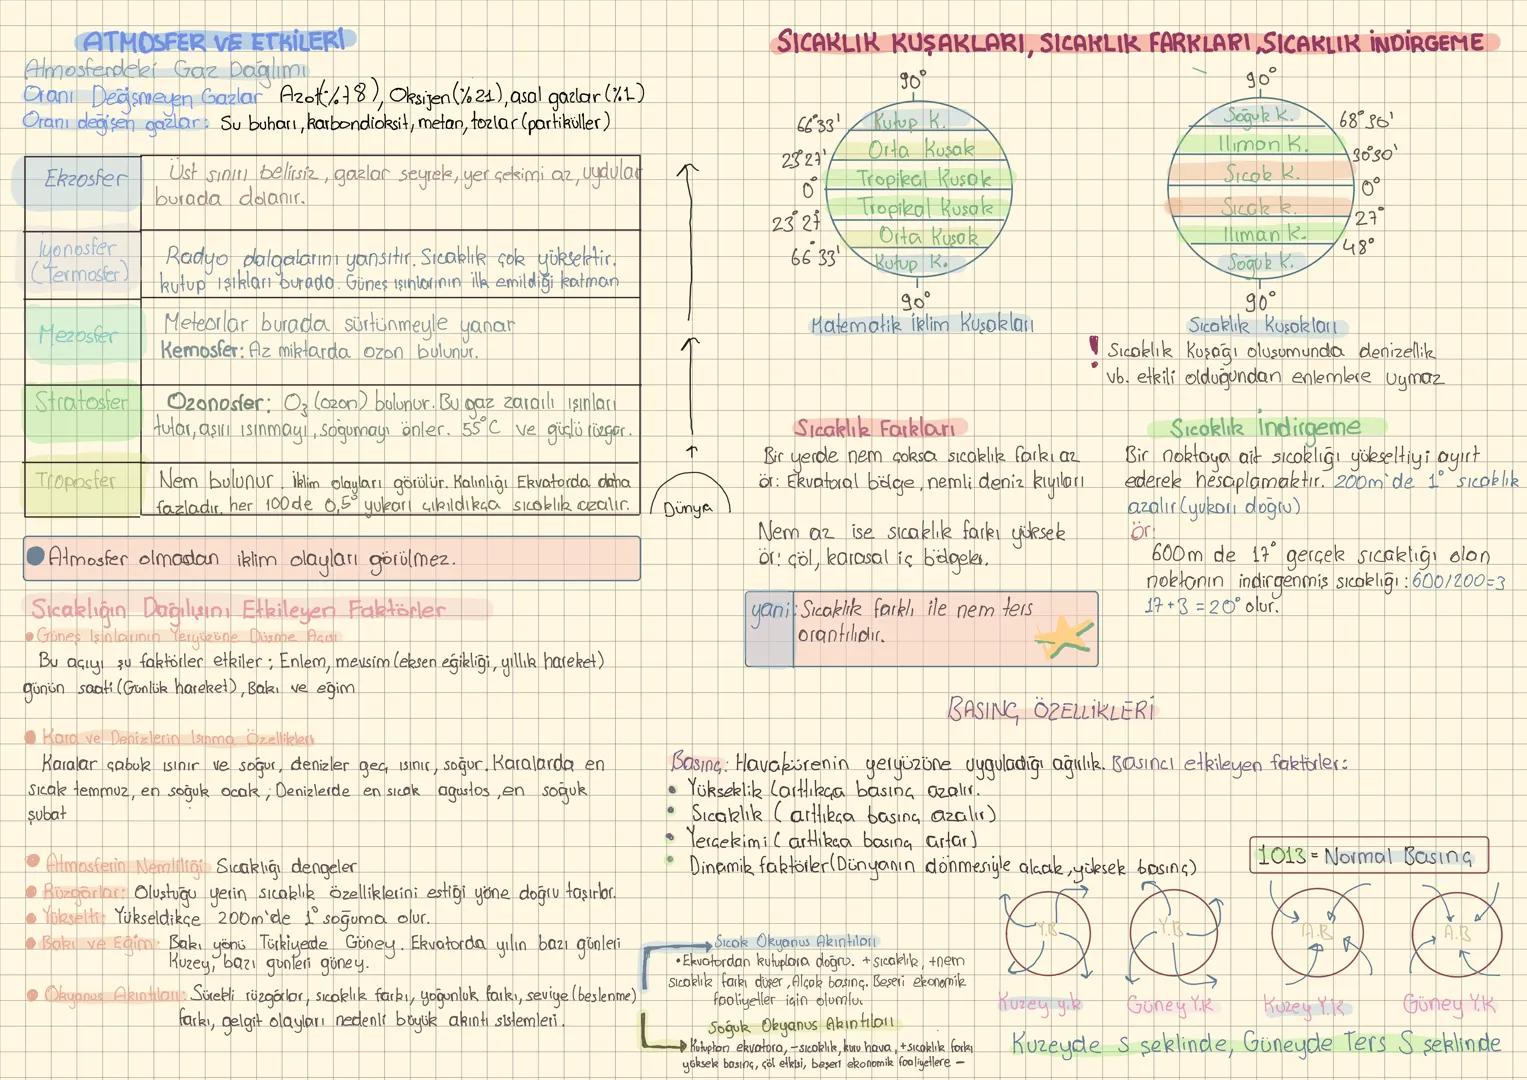 ATMOSFER VE ETKİLERİ
Atmosferdeki Gaz Dağılımı
Oranı Değişmeyen Gazlar Azot(%78), Oksijen(%21), asal gazlar(%1)
Oranı değişen gazlar: Su buharı, karbondioksit, metan, tozlar(partiküller)
Ekzosfer
Üst sınırı belirsiz, gazlar seyrek, yer çekimi az, uydular
burada dolanır.
İyonosfer
(Termosfer)
Radyo dalgalarını yansıtır. Sıcaklık çok yüksektir.
kutup ışıkları burada. Güneş ışınlarının ilk emildiği katman
Mezosfer
Meteorlar burada sürtünmeyle yanar
Kemosfer: Az miktarda ozon bulunur.
Stratosfer
Ozonosfer: O3 (ozon) bulunur. Bu gaz zararlı ışınları
tutar, aşırı ısınmayı, soğumayı önler. 55°C ve güçlü rüzgar.
Troposfer
Nem bulunur, iklim olayları görülür. Kalınlığı Ekvatorda daha
fazladır. her 100de 0,5° yukarı çıkıldıkça sıcaklık azalır.
Dünya
Atmosfer olmadan iklim olayları görülmez.
Sıcaklığın Dağılışını Etkileyen Faktörler
• Güneş Işınlarının Yeryüzüne Düşme Açısı
Bu açıyı şu faktörler etkiler; Enlem, mevsim(eksen eğikliği, yıllık hareket)
günün saati(Günlük hareket), Bakı ve eğim
• Kara ve Denizlerin Isınma Özellikleri
Karalar çabuk ısınır ve soğur, denizler geç ısınır, soğur. Karalarda en
sıcak temmuz, en soğuk ocak; Denizlerde en sıcak ağustos, en soğuk
şubat
• Atmosferin Nemliliği: Sıcaklığı dengeler
• Rüzgarlar: Oluştuğu yerin sıcaklık özelliklerini estiği yöne doğru taşırlar.
• Yükselti: Yükseldikçe 200m'de 1° soğuma olur.
• Bakı ve Eğim: Bakı yönü Türkiyede Güney. Ekvatorda yılın bazı günleri
Kuzey, bazı günleri güney.
• Okyanus Akıntıları: Sürekli rüzgarlar, sıcaklık farkı, yoğunluk farkı, seviye(beslenme)
farkı, gelgit olayları nedenli büyük akıntı sistemleri.
SICAKLIK KUŞAKLARI, SICAKLIK FARKLARI, SICAKLIK İNDİRGEME
90°
66°33' Kutup K.
Orta Kuşak
23°27'
Tropikal Kuşak
0°
Tropikal Kuşak
23°27
Orta Kuşak
66°33' Kutup K.
90°
Matematik İklim Kuşakları
90°
Soğuk K. 68°30'
Ilıman K.
30°30'
Sıcak K.
0°
Sıcak K.
27°
Ilıman K.
48°
Soğuk K.
90°
Sıcaklık Kuşakları
! Sıcaklık Kuşağı oluşumunda denizellik
vb. etkili olduğundan enlemlere uymaz
Sıcaklık Farkları
Bir yerde nem çoksa sıcaklık farkı az
ör: Ekvatoral bölge, nemli deniz kıyıları
Nem az ise sıcaklık farkı yüksek
ör: çöl, karasal iç bölgeler.
yani: Sıcaklık farklı ile nem ters
orantılıdır.
Sıcaklık İndirgeme
Bir noktaya ait sıcaklığı yükseltiyi ayırt
ederek hesaplamaktır. 200m'de 1° sıcaklık
azalır(yukarı doğru)
Ör:
600m de 17° gerçek sıcaklığı olan
noktanın indirgenmiş sıcaklığı: 600/200=3
17+3=20° olur.
BASINÇ ÖZELLİKLERİ
Basınç: Havakürenin yeryüzüne uyguladığı ağırlık. Basıncı etkileyen faktörler:
• Yükseklik (arttıkça basınç azalır.
• Sıcaklık (arttıkça basınç azalır)
• Yerçekimi (arttıkça basınç artar)
• Dinamik faktörler(Dünyanın dönmesiyle alçak, yüksek basınç)
1013 = Normal Basınç
Y.B Y.B A.B A.B
Kuzey y.k Güney Y.K Kuzey Y.K Güney Y.K
Kuzeyde S şeklinde, Güneyde Ters S şeklinde
Sıcak Okyanus Akıntıları
• Ekvatordan kutuplara doğru. +sıcaklık, +nem
sıcaklık farkı düşer, Alçak basınç. Beşeri ekonomik
faaliyetler için olumlu.
Soğuk Okyanus Akıntıları
Kutuptan ekvatora, -sıcaklık, kuru hava, +sıcaklık farkı
yüksek basınç, çöl etkisi, beşeri ekonomik faaliyetlere -